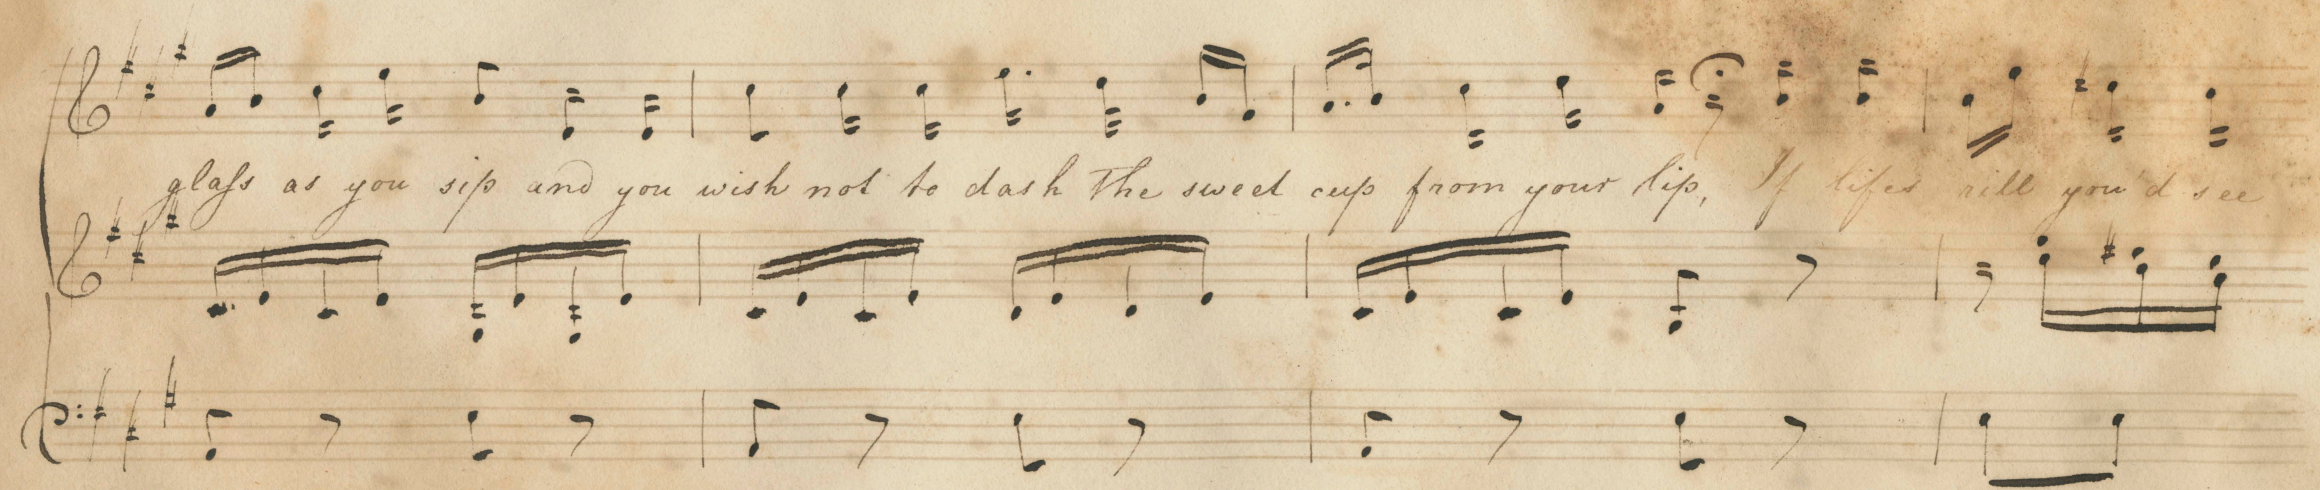 glaſs as you sip and you wish not to dash The sweet cup from your lip, If lifes rill you'd see